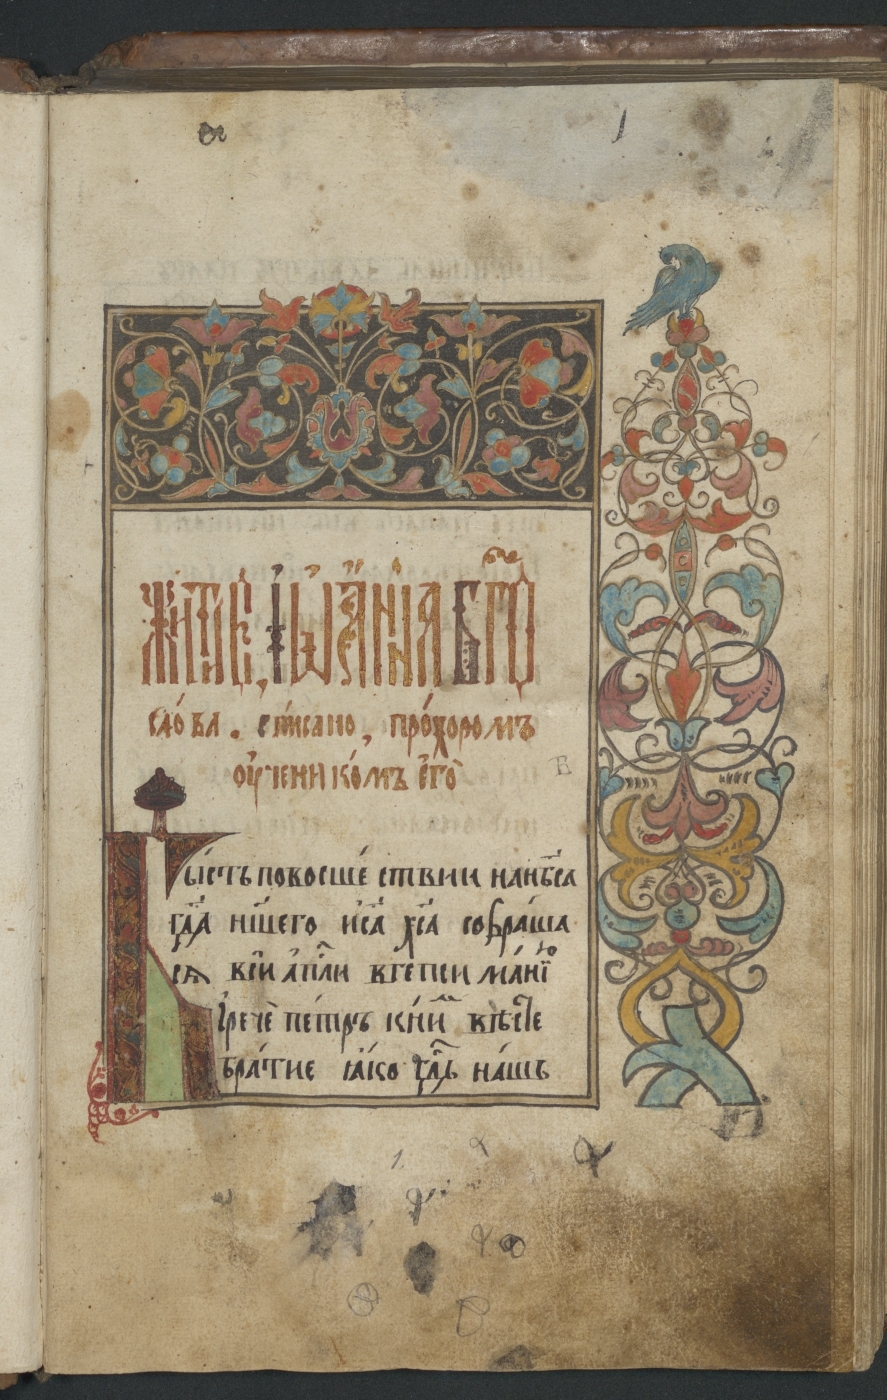 Житїе, іѡанна бг҃о
сло́ва. спи́сано, про́хоромъ
оу҆чени ко́мъ є҆го̀
Бы́сть по восше́ ствии на нб҃са
гдⷭ҇а на́шего и҆сⷭ҇а хрⷭ҇та собра́ша
ся вси́ а҆пⷭ҇ли въ геѳси ма́нїю
и҆ речѐ пе́тръ к ни́мъ вѣ́сте
бра́тие ꙗ҆́ко гдⷭ҇ь на́шъ